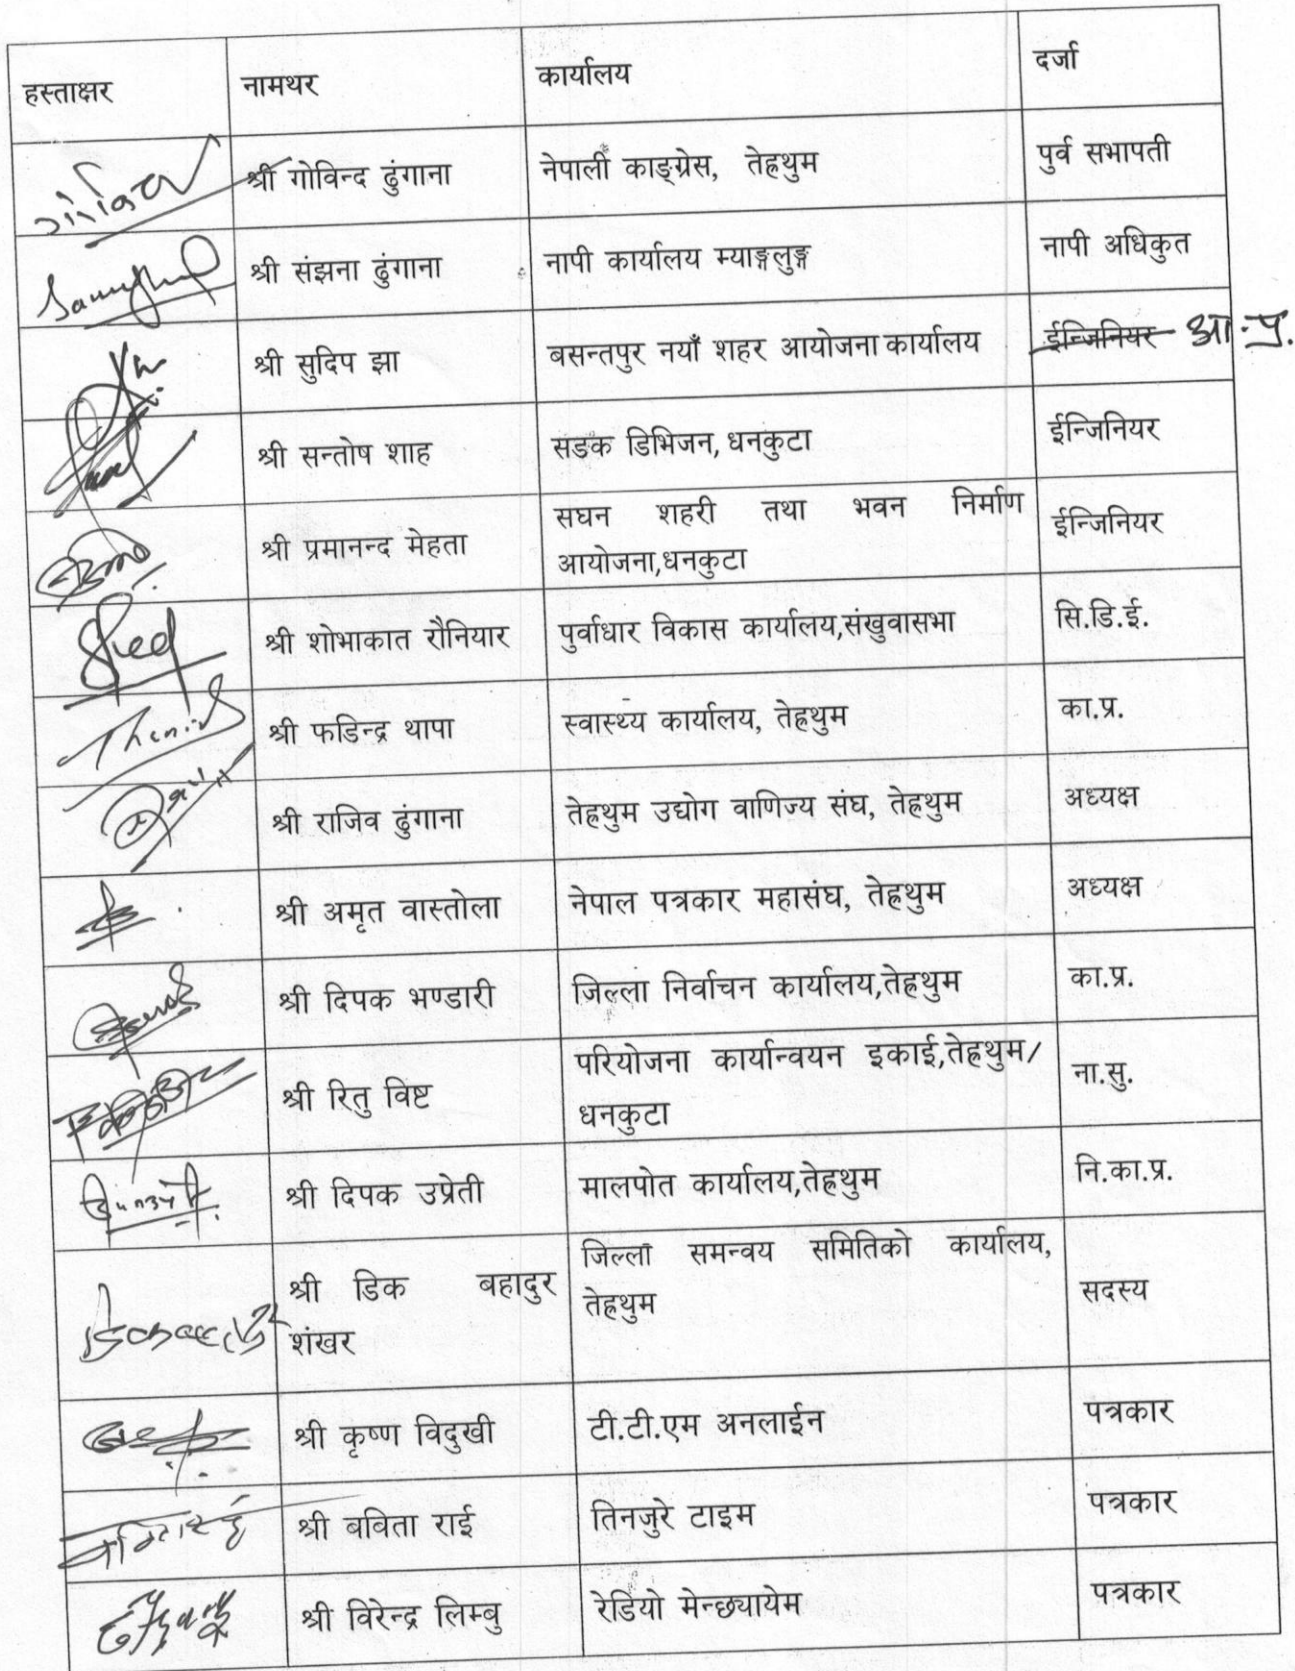 हस्ताक्षर नामथर कार्यालय दर्जा
श्री गोविन्द ढुंगाना नेपाली काङ्ग्रेस, तेह्रथुम पुर्व सभापती
श्री संझना ढुंगाना नापी कार्यालय म्याङ्गलुङ्ग नापी अधिकृत
श्री सुदिप झा बसन्तपुर नयाँ शहर आयोजना कार्यालय ईन्जिनियर आ.प्र.
श्री सन्तोष शाह सडक डिभिजन, धनकुटा ईन्जिनियर
श्री प्रमानन्द मेहता सघन शहरी तथा भवन निर्माण
आयोजना,धनकुटा ईन्जिनियर
श्री शोभाकात रौनियार पुर्वाधार विकास कार्यालय,संखुवासभा सि.डि.ई.
श्री फडिन्द्र थापा स्वास्थ्य कार्यालय, तेह्रथुम का.प्र.
श्री राजिव ढुंगाना तेह्रथुम उद्योग वाणिज्य संघ, तेह्रथुम अध्यक्ष
श्री अमृत वास्तोला नेपाल पत्रकार महासंघ, तेह्रथुम अध्यक्ष
श्री दिपक भण्डारी जिल्ला निर्वाचन कार्यालय,तेह्रथुम का.प्र.
श्री रितु विष्ट परियोजना कार्यान्वयन इकाई,तेह्रथुम/
धनकुटा ना.सु.
श्री दिपक उप्रेती मालपोत कार्यालय,तेह्रथुम नि.का.प्र.
श्री डिक बहादुर जिल्ला समन्वय समितिको कार्यालय,
शंखर तेह्रथुम सदस्य
श्री कृष्ण विदुखी टी.टी.एम अनलाईन पत्रकार
श्री बविता राई तिनजुरे टाइम पत्रकार
श्री विरेन्द्र लिम्बु रेडियो मेन्छ्यायेम पत्रकार